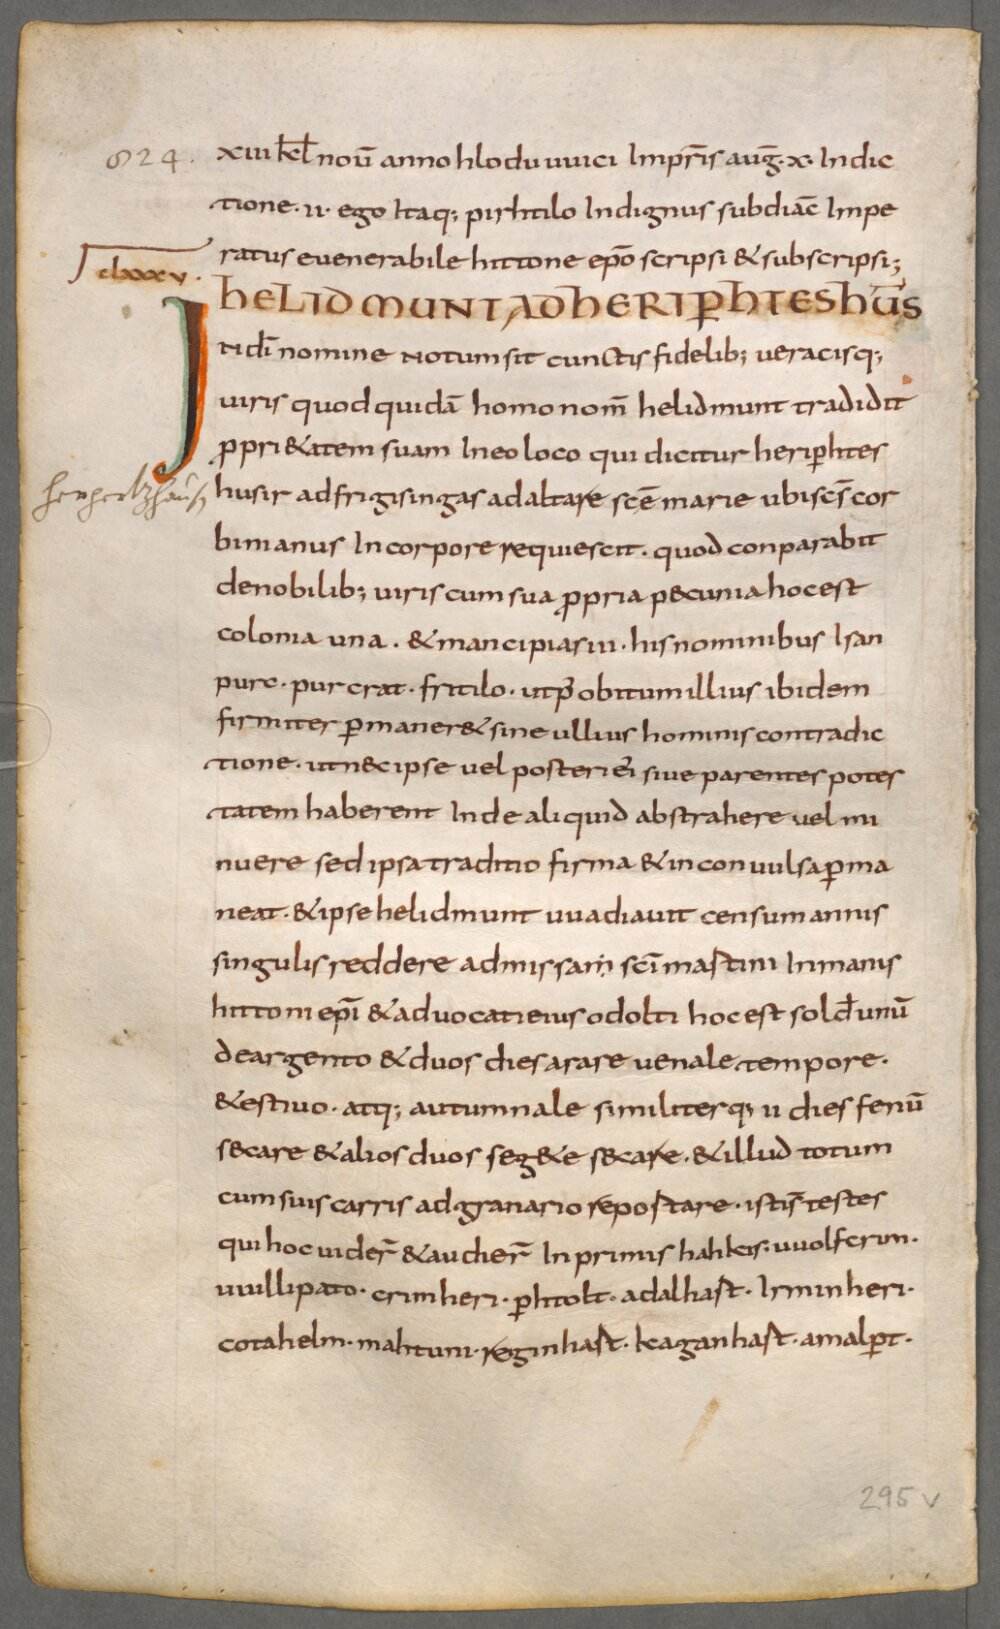 824.
xiii kał nou̅ anno hlodu uuici Imprīs aug̅. x. Indic
tione. ii. ego Itaq; pirhtilo Indignus subdiac̅ Impe
ratus euenerabile hittone epo̅ scripsi & subscripsi;
clxxxv.
HELIDMUNT AD HERIPHTESHUS
IN di̅ nomine notum sit cunctis fidelib; ueracisq;
uiris quod quida̅ homo nom̅ helidmunt tradidit
ꝓpri&atem suam In eo loco qui dicitur heriꝑhtes
herpertzhausz
husir ad frigisingas ad altare sce̅ marie ubi sc̅s cor
bimanus In corpore requiescit. quod conparabit
de nobilib; uiris cum sua ꝓpria p&cunia hoc est
colonia una. & mancipias iii. his nominibus Isan
purc. purcrat. fritilo. ut p̅ obitum illius ibidem
firmiter ꝑmaner& sine ullius hominis contradic
tione. ut n&c ipse uel posteri ei̅ siue parentes potes
tatem haberent Inde aliquid abstrahere uel mi
nuere sed ipsa traditio firma & inconuulsa ꝑma
neat. & ipse helidmunt uuadiauit censum annis
singulis reddere ad missam sci̅ mastini In manis
hittoni epi̅ & aduocati eius odolti hoc est solid̅ unu̅
de argento & duos dies arare uenale tempore.
& estiuo. atq; autumnale similiterq; ii dies fenu̅
s&care & alios duos seg&e s&care. & illud totum
cum suis carris ad granario repostare. isti s̅ testes
qui hoc uider̅ & audier̅ In primis hahkis. uuolfcrim.
uuillipato. crimheri. ꝑhtolt. adalhast. Irminheri.
cotahelm. mahtuni. reginhast. keaganhast. amalꝑt.
295 v